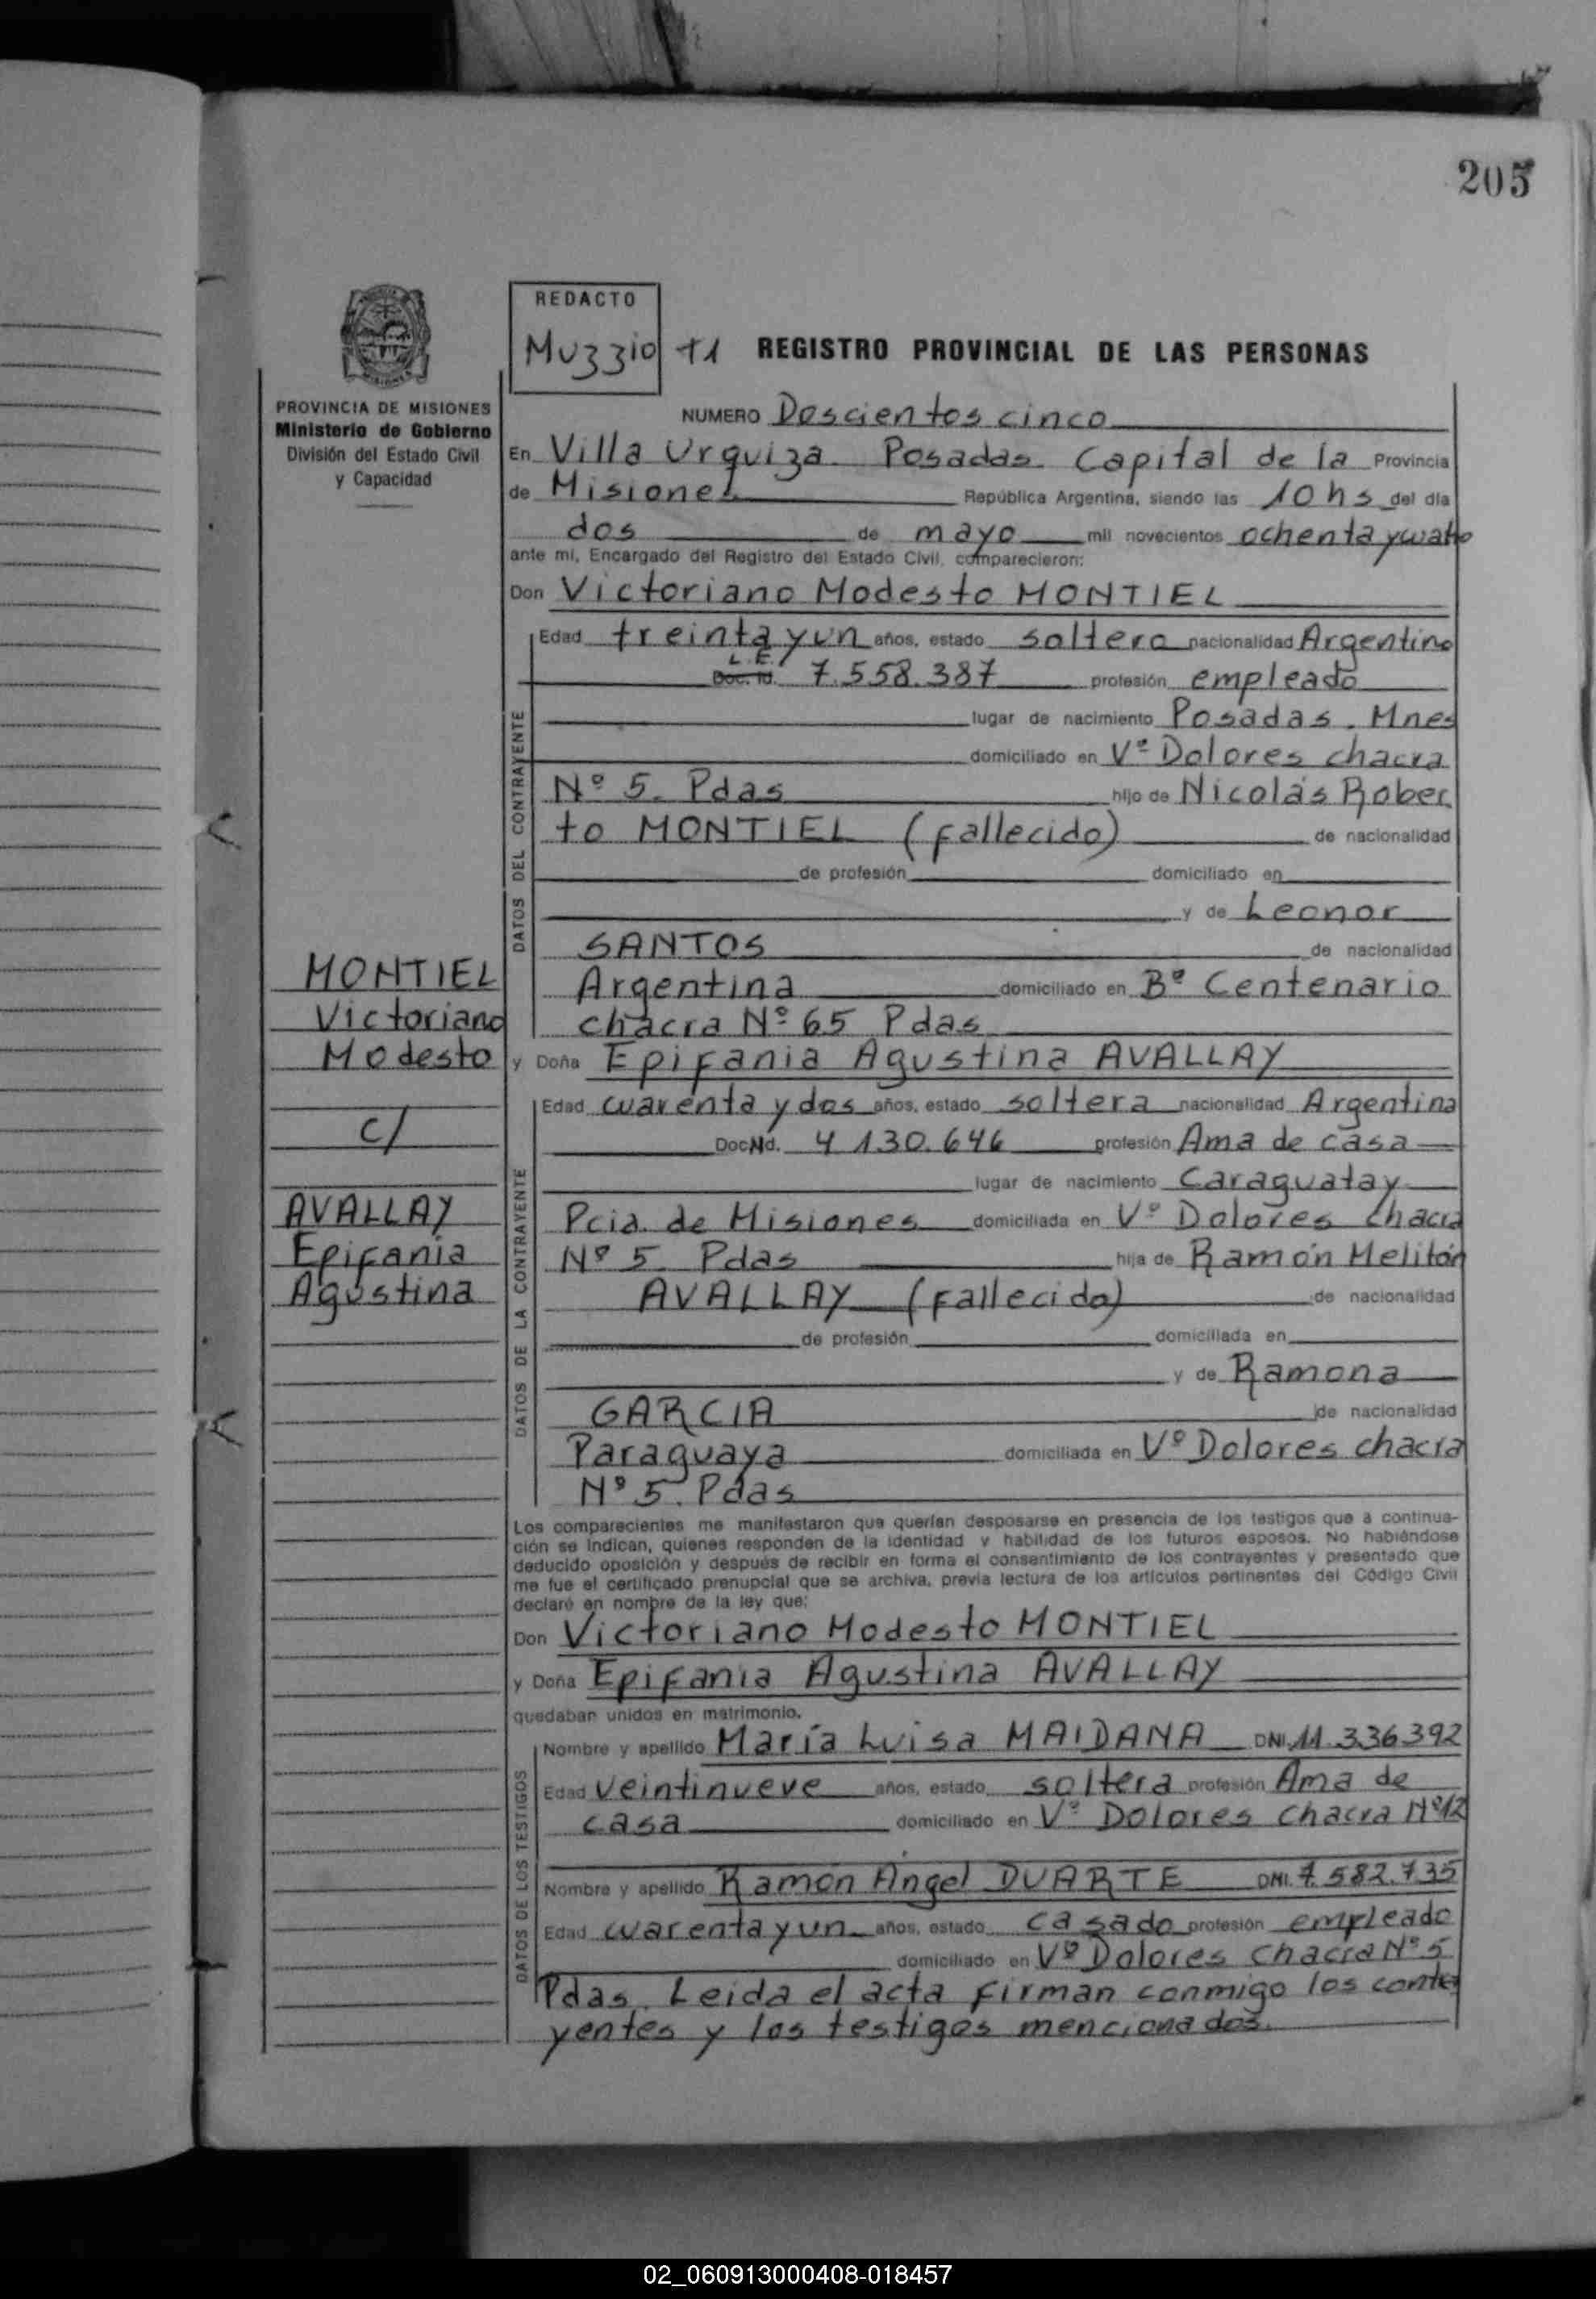 205
REDACTO
Muzzio T1 REGISTRO PROVINCIAL DE LAS PERSONAS
PROVINCIA DE MISIONES
Ministerio de Gobierno
División del Estado Civil
y Capacidad
NUMERO Doscientos cinco
En Villa Urquiza Posadas Capital de la Provincia
de Misiones República Argentina, siendo las 10 hs del día
dos de mayo mil novecientos ochenta y cuatro
ante mi, Encargado del Registro del Estado Civil, comparecieron:
Don Victoriano Modesto MONTIEL
DATOS DEL CONTRAYENTE
Edad treinta y un años, estado soltero nacionalidad Argentino
L.E.
Doc. Id. 7.558.387 profesión empleado
lugar de nacimiento Posadas. Mnes
domiciliado en Vº Dolores chacra
Nº 5. Pdas hijo de Nicolás Rober
to MONTIEL (fallecido) de nacionalidad
de profesión domiciliado en
y de Leonor
SANTOS de nacionalidad
Argentina domiciliado en Bº Centenario
chacra Nº 65 Pdas
MONTIEL
Victoriano
Modesto
c/
AVALLAY
Epifania
Agustina
y Doña Epifania Agustina AVALLAY
DATOS DE LA CONTRAYENTE
Edad cuarenta y dos años, estado soltera nacionalidad Argentina
Doc Nd. 4 130.646 profesión Ama de casa
lugar de nacimiento Caraguatay
Pcia. de Misiones domiciliada en Vº Dolores chacra
Nº 5 Pdas hija de Ramón Melitón
AVALLAY (Fallecido) de nacionalidad
de profesión domiciliada en
y de Ramona
GARCIA de nacionalidad
Paraguaya domiciliada en Vº Dolores chacra
Nº 5. Pdas
Los comparecientes me manifestaron que querían desposarse en presencia de los testigos que a continua-
ción se indican, quienes responden de la identidad y habilidad de los futuros esposos. No habiéndose
deducido oposición y después de recibir en forma el consentimiento de los contrayentes y presentado que
me fue el certificado prenupcial que se archiva, previa lectura de los artículos pertinentes del Código Civil
declaré en nombre de la ley que:
Don Victoriano Modesto MONTIEL
y Doña Epifania Agustina AVALLAY
quedaban unidos en matrimonio.
DATOS DE LOS TESTIGOS
Nombre y apellido María Luisa MAIDANA DNI. 11.336.392
Edad veintinueve años, estado soltera profesión Ama de
casa domiciliado en Vº Dolores chacra Nº12
Nombre y apellido Ramón Angel DUARTE DNI. 7.582.735
Edad cuarenta y un años, estado casado profesión empleado
domiciliado en Vº Dolores chacra Nº 5
Pdas. Leida el acta firman conmigo los contra
yentes y los testigos mencionados.
02_060913000408-018457